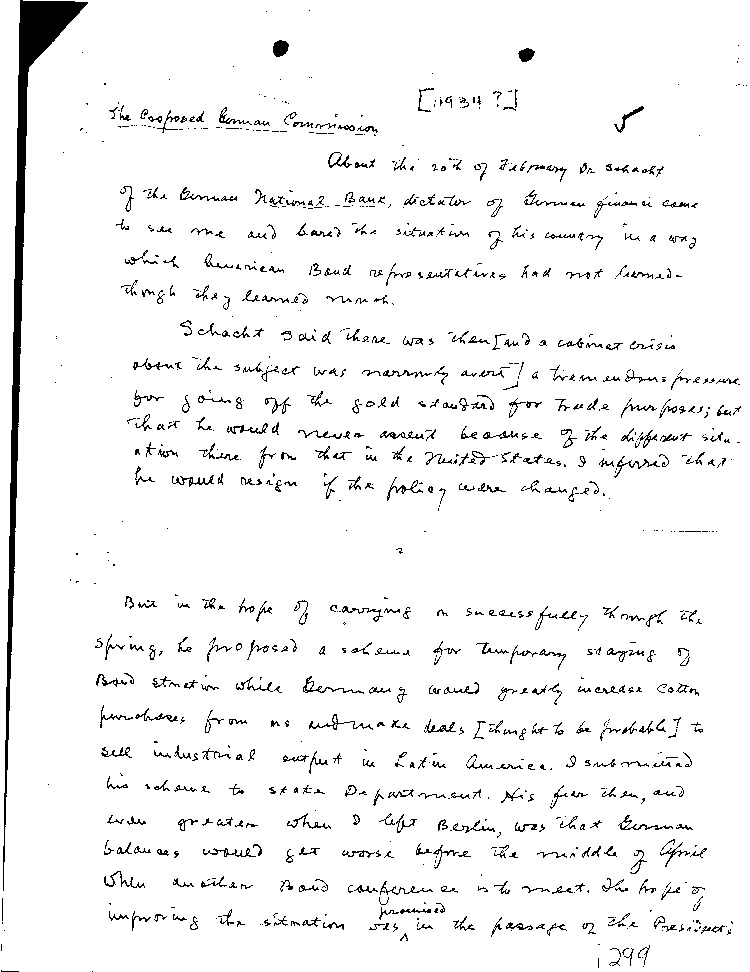 [1934?]
The Proposed German Commission
About the 20th of February Dr Schacht
of the German National Bank, dictator of German finance came
to see me and bared the situation of his country in a way
which American Bond representatives had not learned-
though they learned much.
Schacht said there was then [and a cabinet crisis
about the subject was narrowly avert] a tremendous pressure
for going off the gold standard for trade purposes; but
that he would never assent because of the different situ-
ation there from that in the United States. I inferred that
he would resign if the policy were changed.
2
But in the hope of carrying on successfully through the
spring, he proposed a scheme for temporary staying of
Bond situation while Germany would greatly increase cotton
purchases from us and make deals [thought to be probable] to
sell industrial output in Latin America. I submitted
his scheme to State Department. His fear then, and
even greater when I left Berlin, was that German
balances would get worse before the middle of April
when another Bond conference is to meet. The hope of
improving the situation was promised in the passage of the President's
299